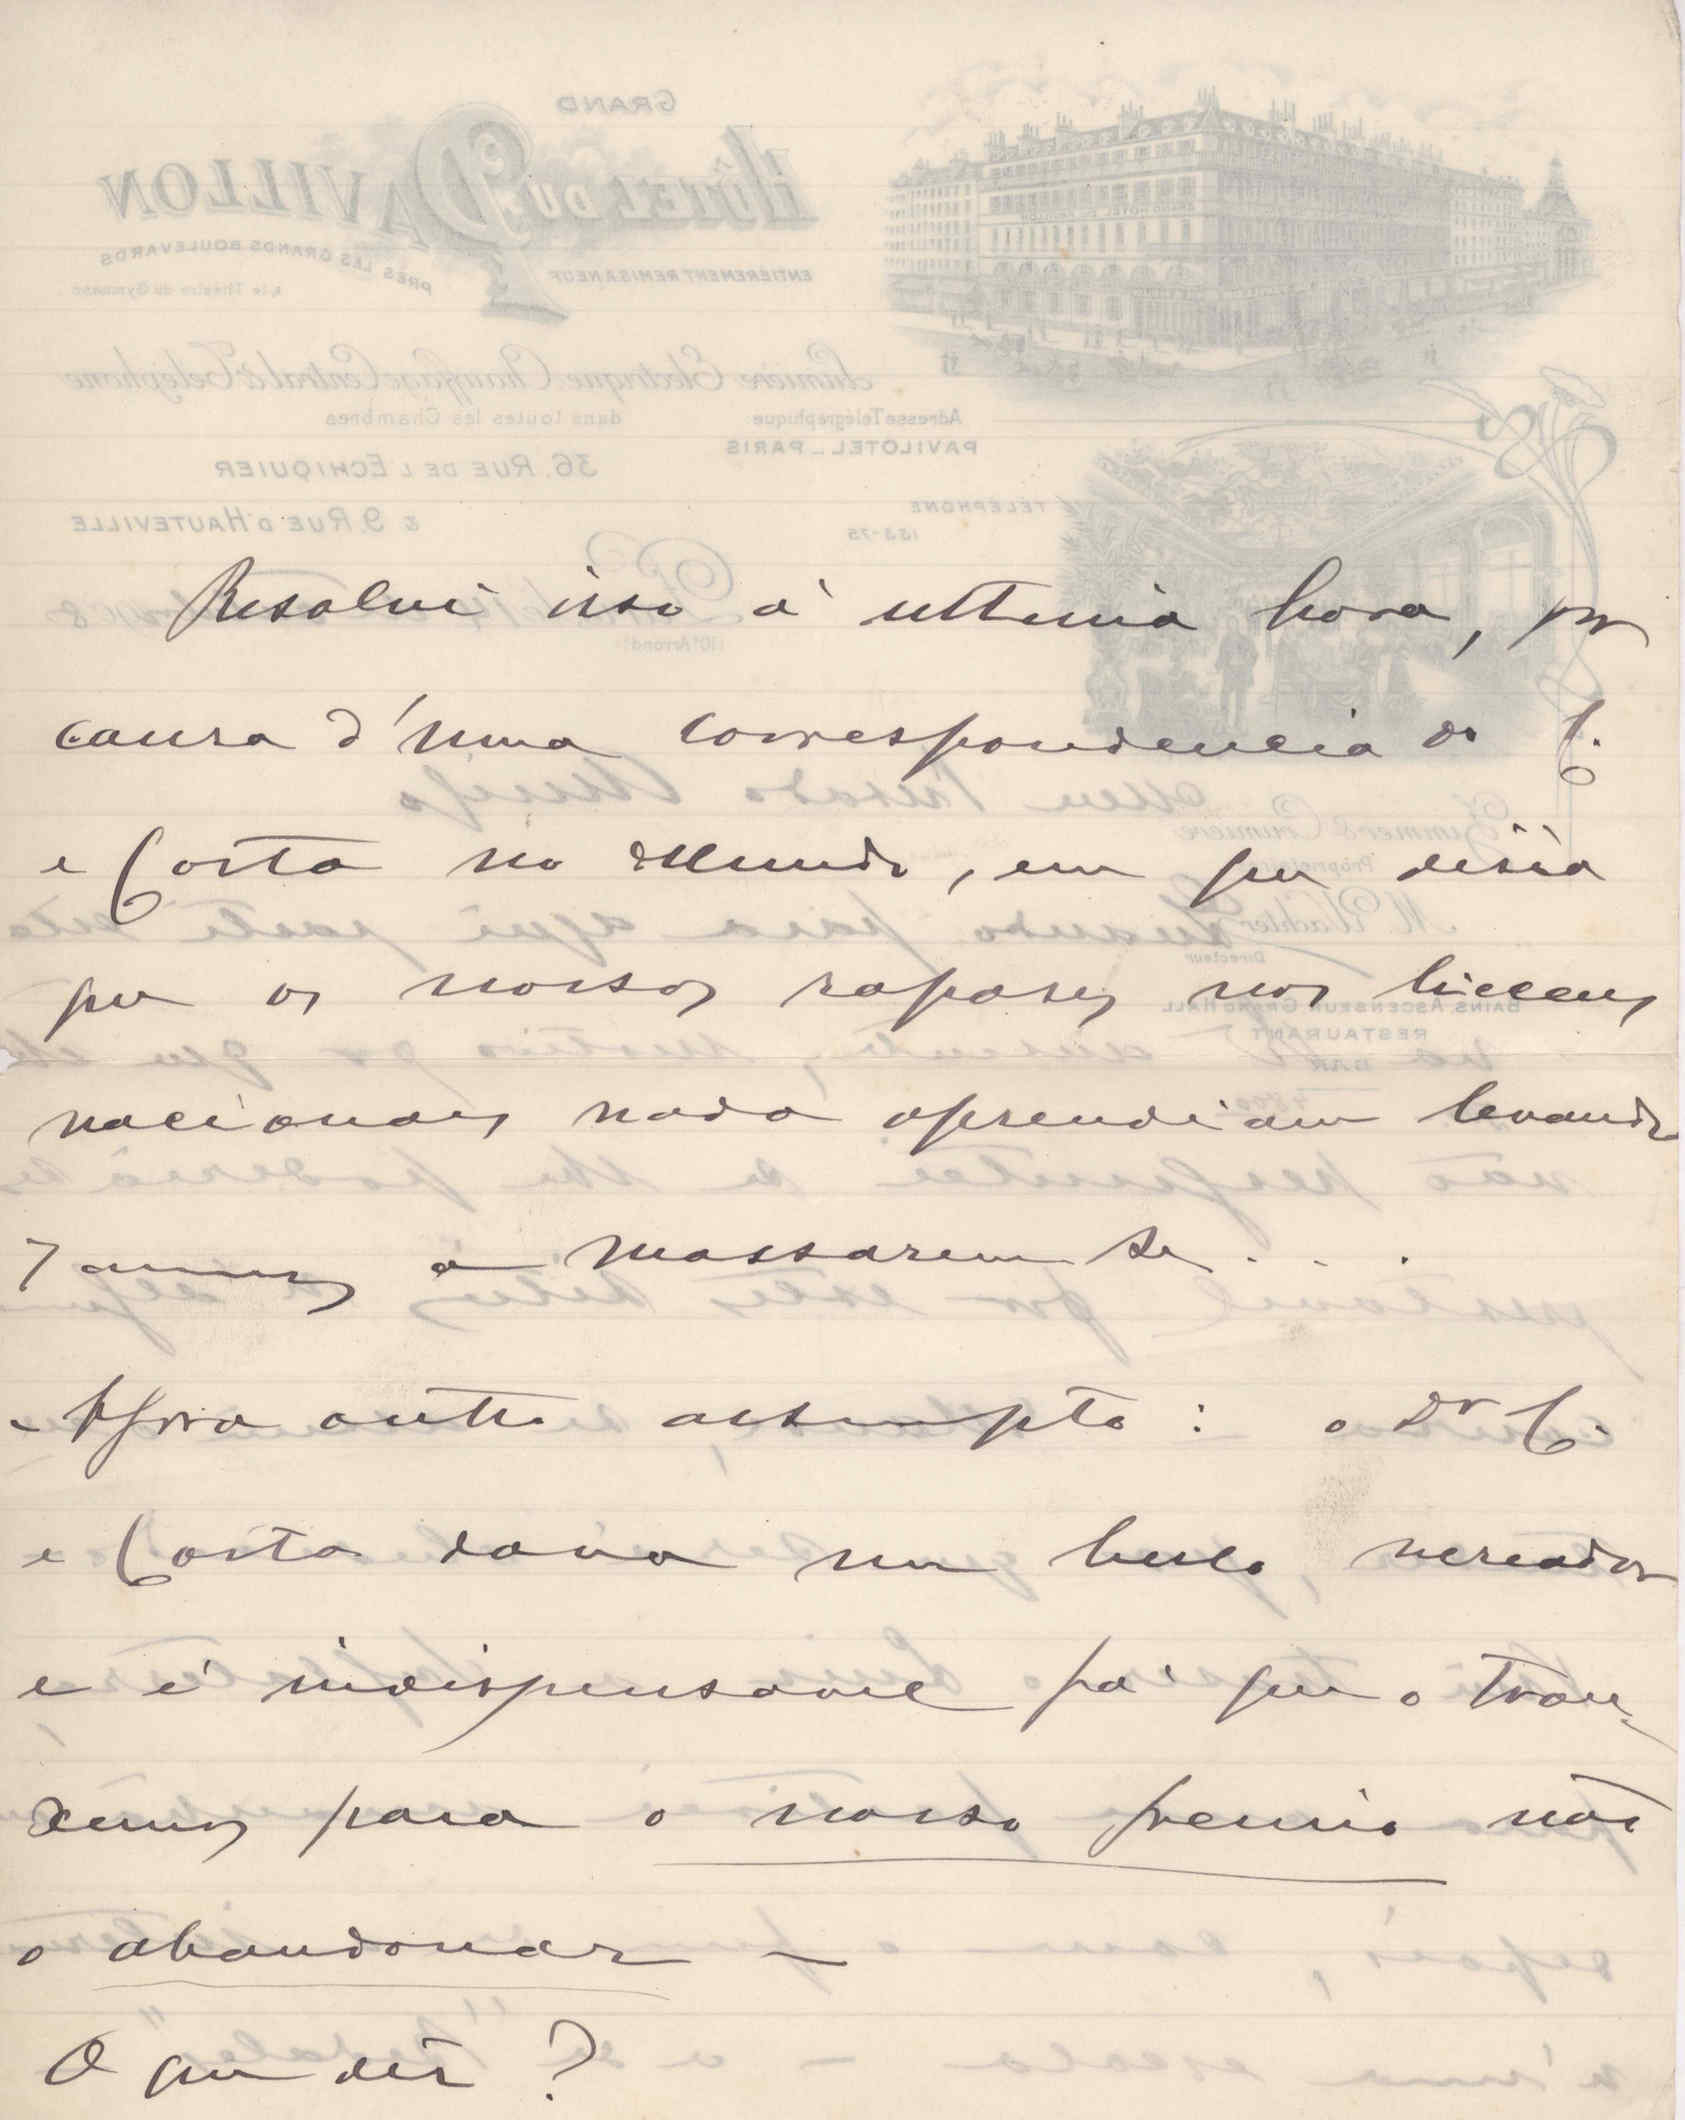 Resolvi isso á ultima hora, por
causa d'uma correspondencia do C.
e Costa no Mundo, em que disia
que os nossos rapases nos liceeus
nacionaes nada aprendiam levando
7 annos a massarem se . . .
- Agora outro assumpto : o Dr C.
e Costa dava um bello vereador
e é indispensavel pa' que o trou-
xemos para o nosso gremio não
o abandonar -
O que diz ?